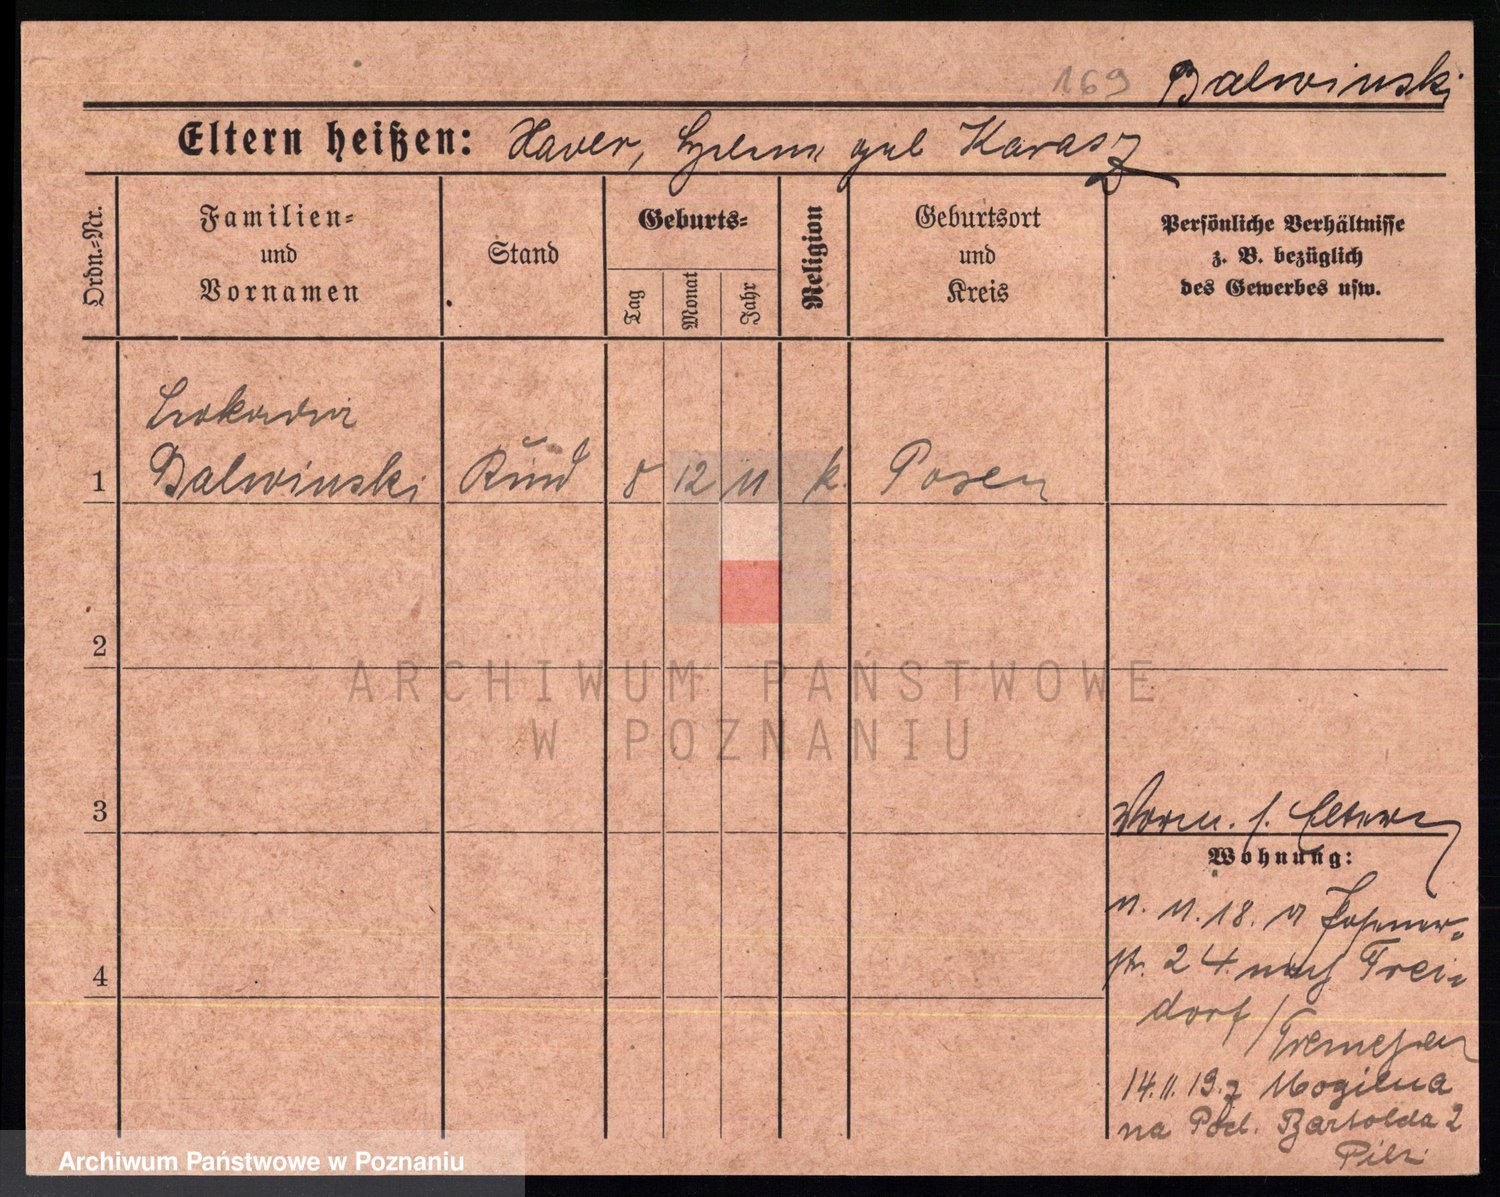 169 Balwinski
Eltern heißen: Xaver, geb Karasz
Ordn.-Nr.
Familien-
und
Vornamen
Stand
Geburts-
Tag
Monat
Jahr
Religion
Geburtsort
und
Kreis
Persönliche Verhältnisse
z. B. bezüglich
des Gewerbes usw.
Leokadia
1 Balwinski Kind 8 12 11 k. Posen
2
3
4
Vorm. s. Eltern
Wohnung:
11. 18. v Posener-
str. 24 nach Frei-
dorf / Tremessen
14.11.19. z Mogilna
na Pocl. Bartolda 2
ARCHIWUM PAŃSTWOWE
W POZNANIU
Archiwum Państwowe w Poznaniu